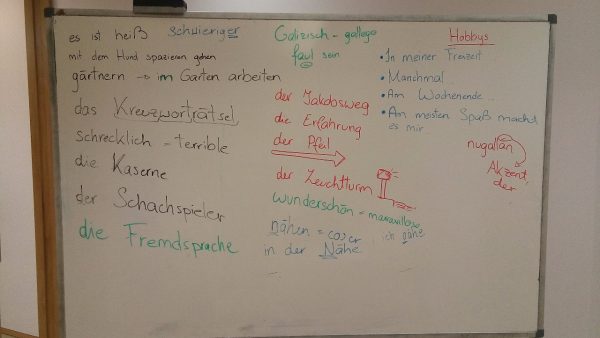 es ist heiß schwieriger
mit dem Hund spazieren gehen
gärtnern → im Garten arbeiten
das Kreuzworträtsel
schrecklich - terrible
die Kaserne
der Schachspieler
die Fremdsprache
Galizisch - gallego
faul sein
der Jakobsweg
die Erfahrung
der Pfeil
der Leuchtturm
wunderschön = maravilloso
nähen = coser ich nähe
in der Nähe
Hobbys
• In meiner Freizeit
• Manchmal
• Am Wochenende...
• Am meisten Spaß macht
es mir
nugallán
Akzent,
der